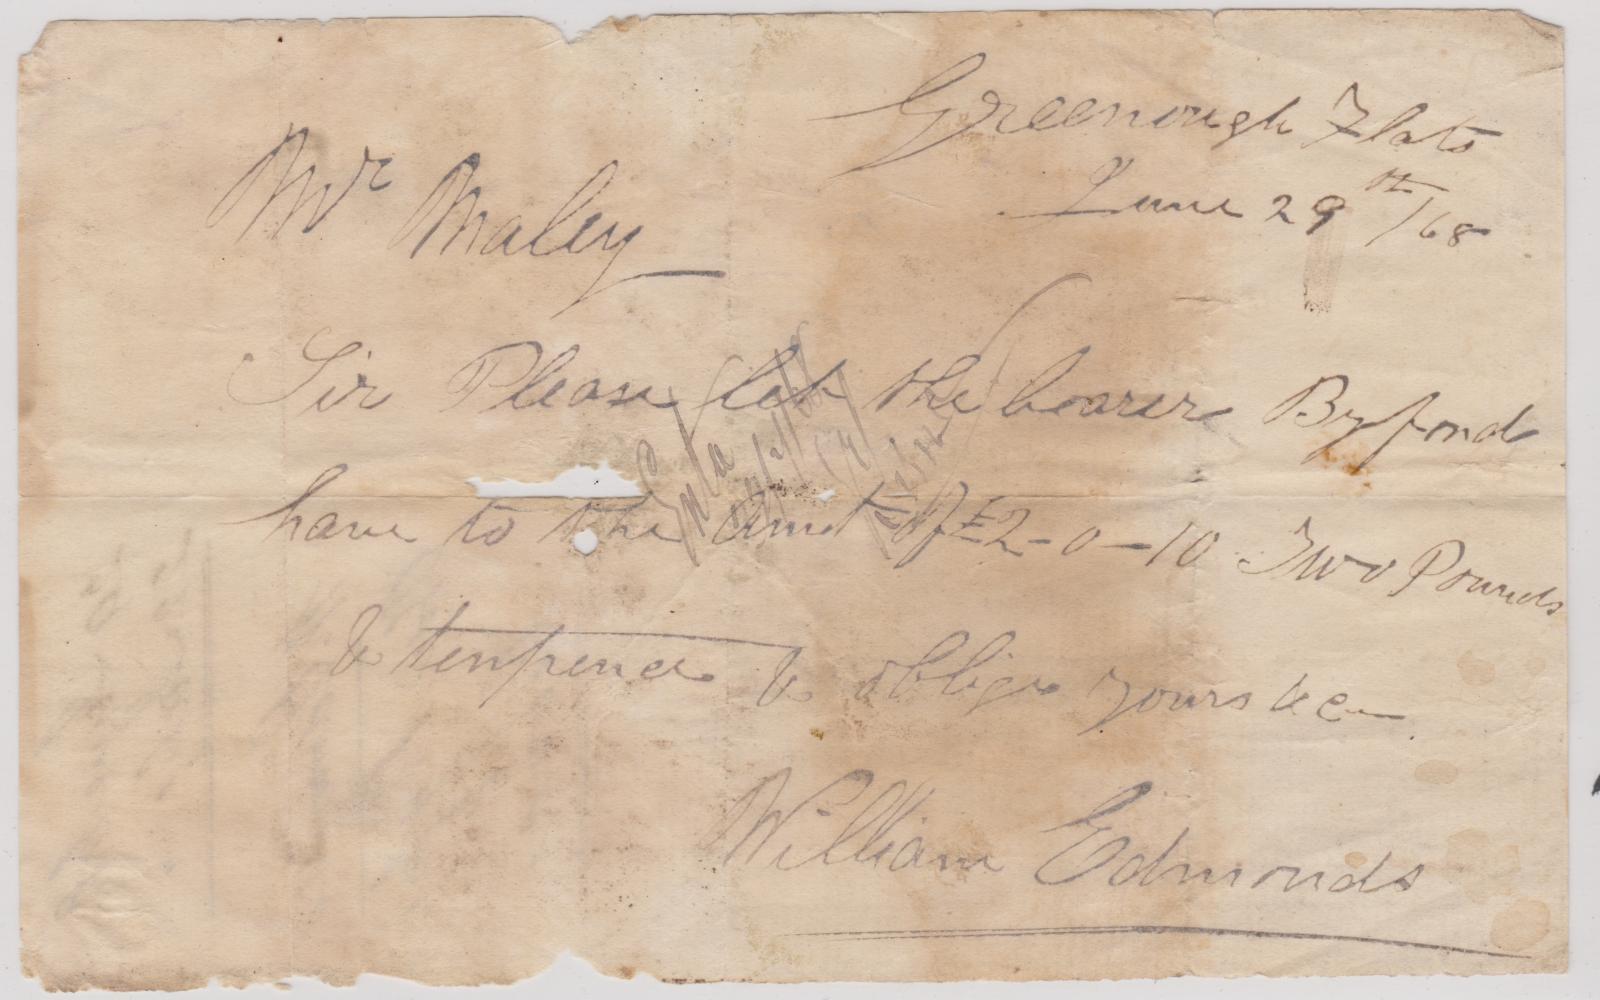 Greenough Flats
June 29th/68
Mr Maley
Sir Please let the bearer Byfond
have to the Amt of £2-0-10 Two Pounds
& tenpence & oblige yours &c
William Edmonds